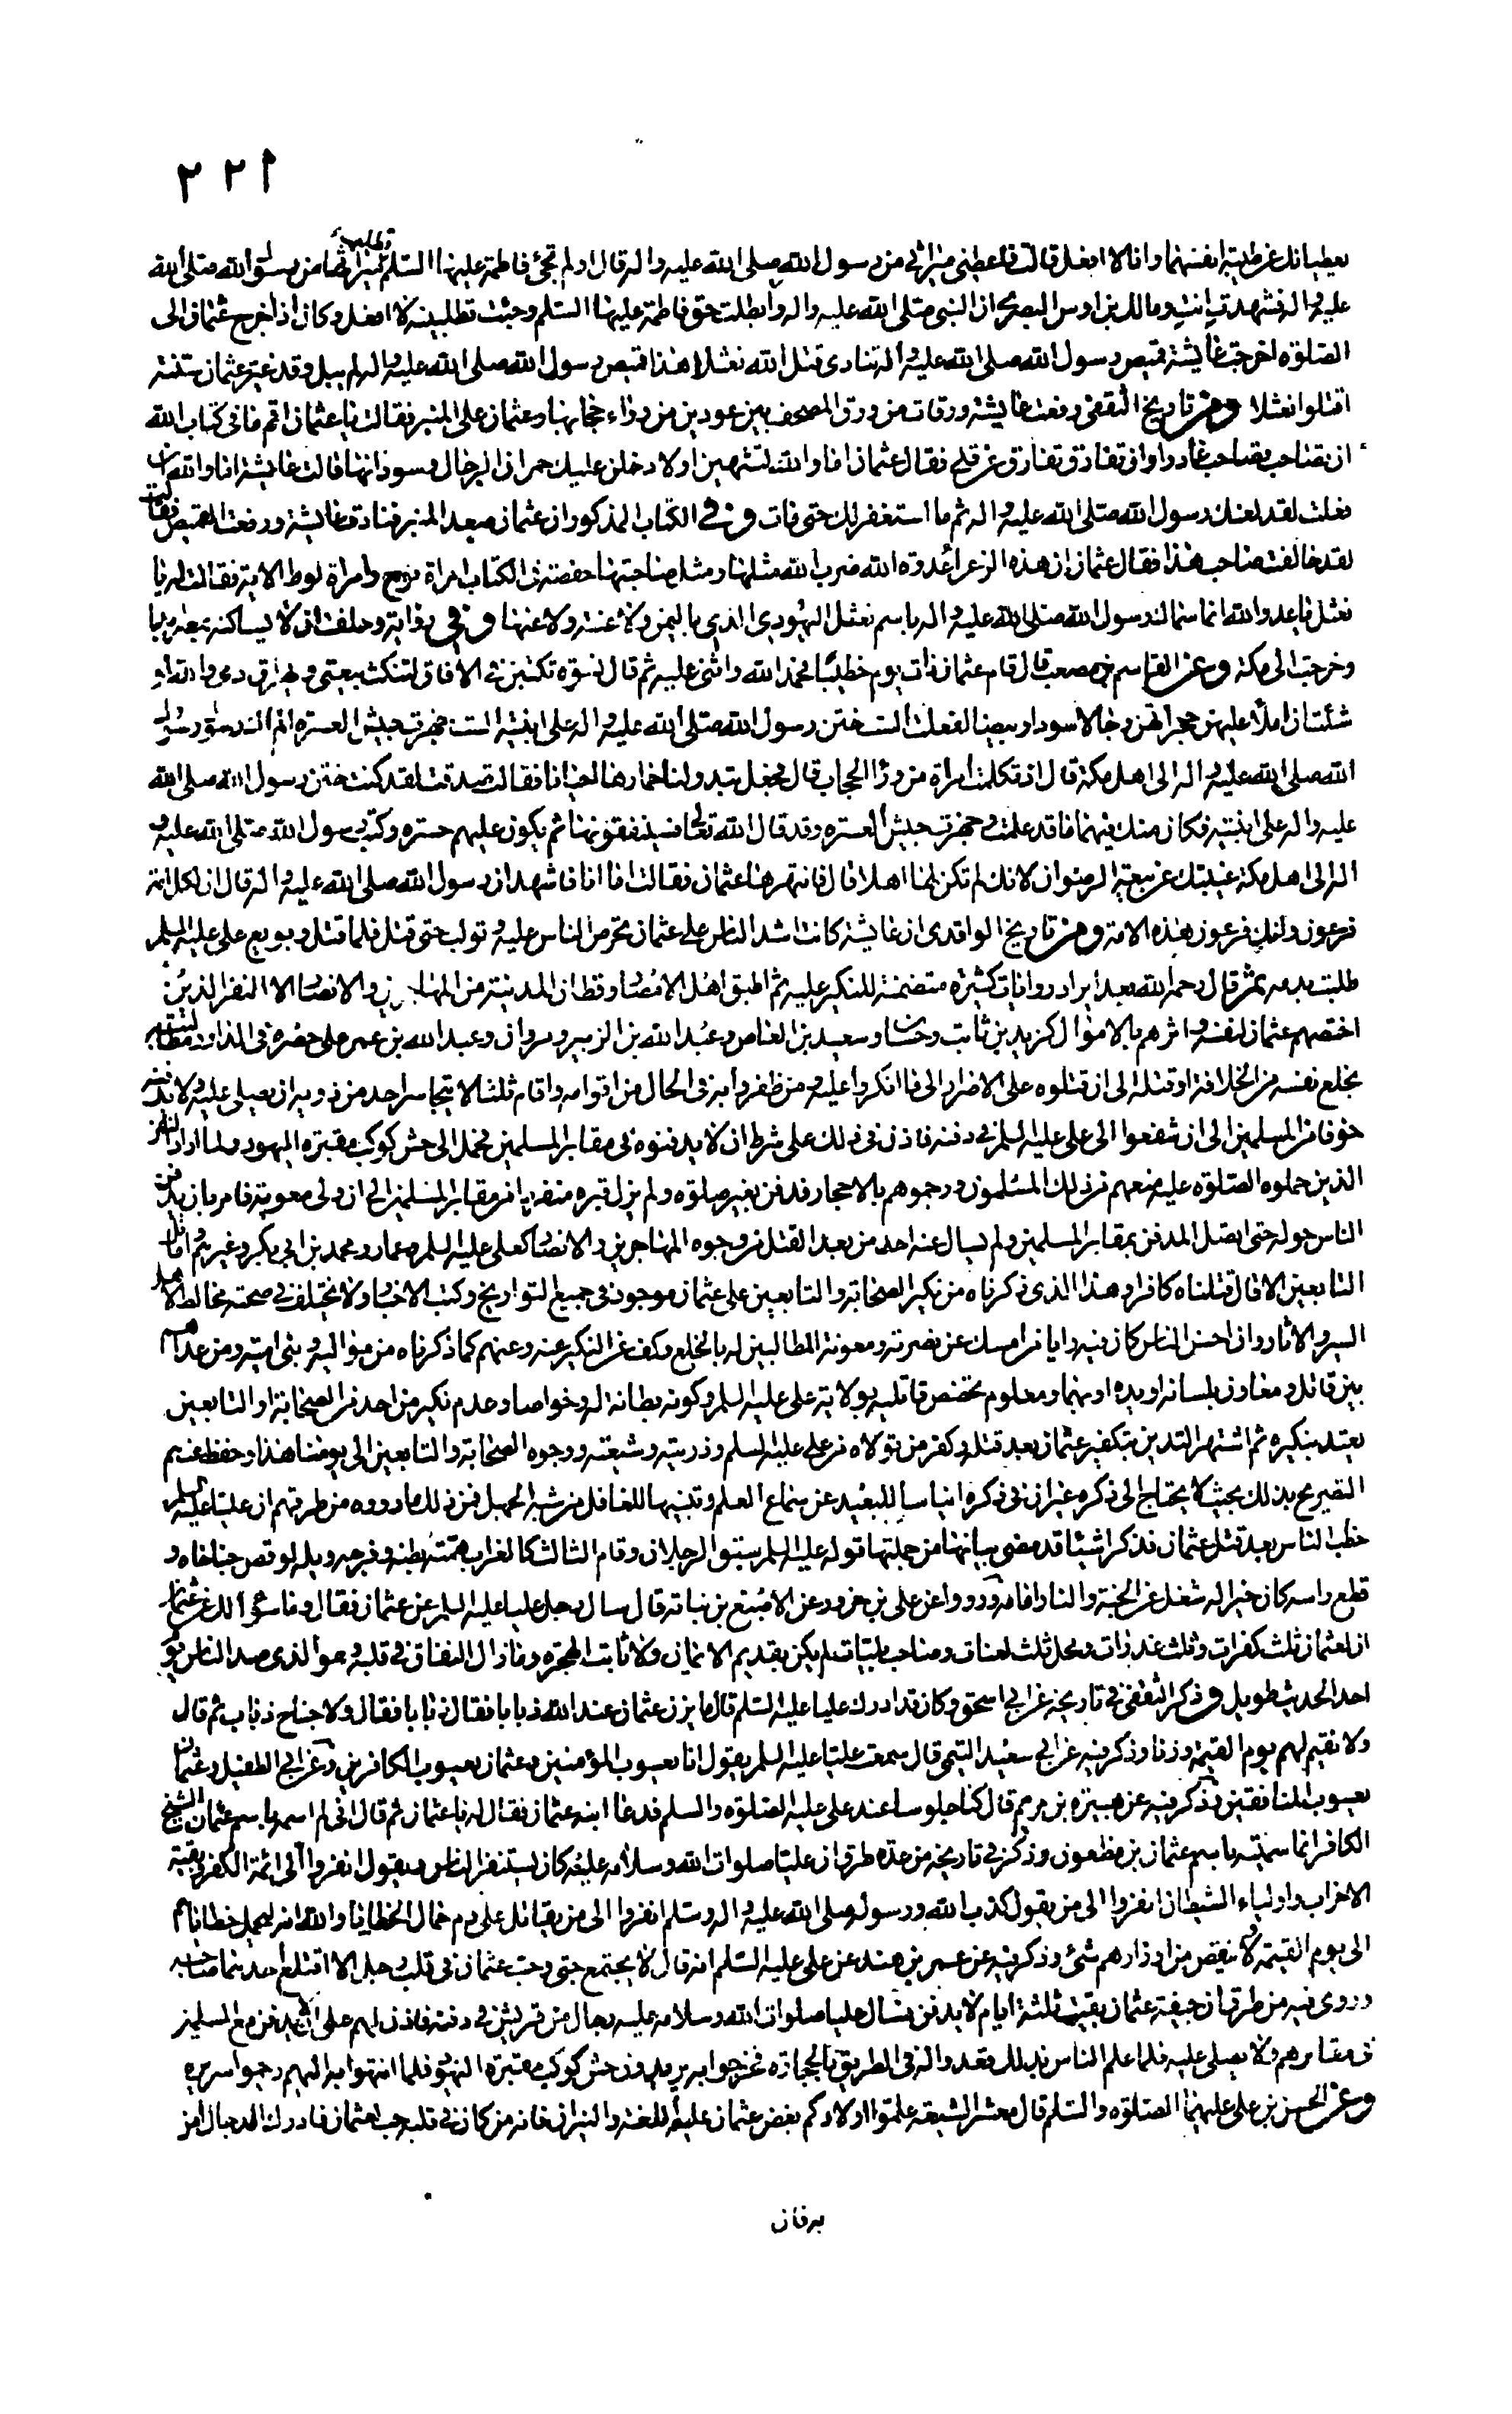 ٢٢١
يعطيانك عن طيبة انفسهما وانا لا افعل قالت فاعطني ميراثي من رسول الله صلى الله عليه واله قال اولم تجئ فاطمة عليها السلم تطلب ميراثها من رسول الله صلى الله
عليه واله فشهدت انت ومالك بن اوس البصري ان النبي صلى الله عليه واله وابطلت حق فاطمة عليها السلم وجئت تطلبينه لا افعل وكان اذا خرج عثمان الى
الصلوة اخرجت عايشة قميص رسول الله صلى الله عليه واله تنادي قتل الله نعثلا هذا قميص رسول الله صلى الله عليه واله لم يبل وقد غير عثمان سنته
اقتلوا نعثلا ومن تاريخ الثقفي رفعت عايشة ورقات من ورق المصحف بين عودين من وراء حجابها وعثمان على المنبر فقالت يا عثمان اقم ما في كتاب الله
ان تصاحب تصاحب غادرا وان تفارق تفارق عن قلى فقال عثمان اما والله لتنتهين اولادخلن عليك حمران الرجال وسودانها قالت عايشة اما والله ان
فعلت لقد لعنك رسول الله صلى الله عليه واله ثم ما استغفر لك حتى مات وفي الكتاب المذكور ان عثمان صعد المنبر فنادت عايشة ورفعت القميص فقالت
لقد خالفت صاحب هذا فقال عثمان ان هذه الزعراء عدوة الله ضرب الله مثلها ومثل صاحبتها حفصة في الكتاب امراة نوح وامراة لوط الاية فقالت له يا
نعثل يا عدو الله انما سماك رسول الله صلى الله عليه واله باسم نعثل اليهودي الذي باليمن ولاعنته ولاعنها وفي رواية وحلفت ان لا يساكنه بمصر ابدا
وخرجت الى مكة وعن القاسم بن مصعب قال قام عثمان ذات يوم خطيبا فحمد الله واثنى عليه ثم قال نسوة تكتبن في الافاق لتنكث بيعتي ويهراق دمي والله لو
شئت ان املا عليهن حجراتهن رجالا سودا وبيضا لفعلت الست ختن رسول الله صلى الله عليه واله على ابنتيه الست جهزت جيش العسرة الم اك رسول رسول
الله صلى الله عليه واله الى اهل مكة قال اذ تكلمت امراة من وراء الحجاب قال فجعل يبدو لنا خمارها احيانا فقالت صدقت لقد كنت ختن رسول الله صلى الله
عليه واله على ابنتيه فكان منك فيهما ما قد علمت وجهزت جيش العسرة وقد قال الله تعالى فسينفقونها ثم يكون عليهم حسرة وكنت رسول الله صلى الله عليه و
اله الى اهل مكة غيبتك عن بيعة الرضوان لانك لم تكن لها اهلا قال فانتهرها عثمان فقالت اما انا فاشهد ان رسول الله صلى الله عليه واله قال ان لكل امة
فرعون وانك فرعون هذه الامة ومن تاريخ الواقدي ان عايشة كانت اشد الناس على عثمان تحرض الناس عليه وتولب حتى قتل فلما قتل وبويع علي عليه السلم
طلبت بدمه ثم قال رحمه الله بعد ايراد روايات كثيرة متضمنة للنكير عليه ثم اطبق اهل الامصار وقطان المدينة من المهاجرين والانصار الا النفر الذين
اختصهم عثمان لنفسه واثرهم بالاموال كزيد بن ثابت وحسان وسعيد بن العاص وعبد الله بن الزبير ومروان وعبد الله بن عمر على حصره في الدار ومطالبته
بخلع نفسه من الخلافة او قتله الى ان قتلوه على الاصرار الى ما انكروا عليه ومن ظفروا به في الحال من اقوامه واقام ثلثا لا يتجاسر احد من ذويه ان يصلي عليه ولا يدفنه
خوفا من المسلمين الى ان شفعوا الى علي عليه السلم في دفنه فاذن في ذلك على شرط ان لا يدفنوه في مقابر المسلمين فحمل الى حش كوكب مقبرة اليهود ولما اراد النفر
الذين حملوه الصلوة عليه منعهم من ذلك المسلمون ورجموهم بالاحجار فدفن بغير صلوة ولم يزل قبره منفردا من مقابر المسلمين الى ان ولى معوية فامر بان يدفن
الناس حوله حتى اتصل المدفن بمقابر المسلمين ولم يسال عنه احد من بعد القتل من وجوه المهاجرين والانصار كعلي عليه السلم وعمار ومحمد بن ابي بكر وغيرهم واماثل
التابعين الا قال قتلناه كافرا وهذا الذي ذكرناه من نكير الصحابة والتابعين على عثمان موجود في جميع التواريخ وكتب الاخبار ولا يختلف في صحته مخالط لاهل
السير والاثار وان احسن الناس كان فيه رايا من امسك عن نصرته ومعونة المطالبين له بالخلع وكف عن النكير عنه وعنهم كما ذكرناه من مواليه وبني امية ومن عداهم
بين قاتل ومعاون بلسانه او يده او بهما ومعلوم تخصص قاتليه بولاية علي عليه السلم وكونه بطانة له وخواصا وعدم نكير من احد من الصحابة او التابعين
يعتد بنكيره ثم اشتهر التدين بتكفير عثمان بعد قتله وكفر من تولاه من علي عليه السلم وذريته وشيعته ووجوه الصحابة والتابعين الى يومنا هذا وحفظ عنهم
التصريح بذلك بحيث لا يحتاج الى ذكره غير ان في ذكره ايناسا للبعيد عن سماع العلم وتنبيها للغافل من شبه الجهل فمن ذلك ما رووه من طرقهم ان عليا عليه السلم
خطب الناس بعد قتل عثمان فذكر اشياء قد مضى بيانها من جملتها قوله عليه السلم سبق الرجلان وقام الثالث كالغراب همته بطنه وفرجه ويله لو قص جناحاه و
قطع راسه كان خيرا له شغل عن الجنة والنار امامه ورووا عن علي بن حزور عن الاصبغ بن نباتة قال سال رجل عليا عليه السلم عن عثمان فقال وما سؤالك عن عثمان
ان لعثمان ثلث كفرات وثلث غدرات ومحل ثلث لعنات وصاحب بليات لم يكن بقديم الايمان ولا ثابت الهجرة وما زال النفاق في قلبه هو الذي صد الناس يوم
احد الحديث طويل وذكر الثقفي في تاريخه عن ابي اسحق وكان قد ادرك عليا عليه السلم قال ما يزن عثمان عند الله ذبابا فقال ذبابا فقال ولا جناح ذباب ثم قال
ولا نقيم لهم يوم القيمة وزنا وذكر فيه عن ابي سعيد التيمي قال سمعت عليا عليه السلم يقول انا يعسوب المؤمنين وعثمان يعسوب الكافرين وعن ابي الطفيل وعثمان
يعسوب المنافقين وذكر فيه عن هبيرة بن مريم قال كنا جلوسا عند علي عليه الصلوة والسلم فدعا ابنه عثمان فقال له يا عثمان ثم قال اني لم اسمه باسم عثمان الشيخ
الكافر انما سميته باسم عثمان بن مظعون وذكر في تاريخه من عدة طرق ان عليا صلوات الله وسلامه عليه كان يستنفر الناس ويقول انفروا الى ائمة الكفر وبقية
الاحزاب واولياء الشيطان انفروا الى من يقول كذب الله ورسوله صلى الله عليه واله وسلم انفروا الى من يقاتل على دم حمال الخطايا والله انه ليحمل خطاياهم
الى يوم القيمة لا ينقص من اوزارهم شئ وذكر فيه عن عمر بن هند عن علي عليه السلم انه قال لا يجتمع حبي وحب عثمان في قلب رجل الا اقتلع احدهما صاحبه
وروى فيه من طرق ان جيفة عثمان بقيت ثلثة ايام لا يدفن فسال عليا صلوات الله وسلامه عليه رجال من قريش في دفنه فاذن لهم على ان لا يدفن مع المسلمين
في مقابرهم ولا يصلى عليه فلما علم الناس بذلك قعدوا له في الطريق بالحجارة فخرجوا به يريدون حش كوكب مقبرة اليهود فلما انتهوا به اليهم رجموا سريره
وعن الحسن بن علي عليهما الصلوة والسلم قال معشر الشيعة علموا اولادكم بغض عثمان عليه اللعنة والنيران فانه من كان في قلبه حب لعثمان فادرك الدجال امن